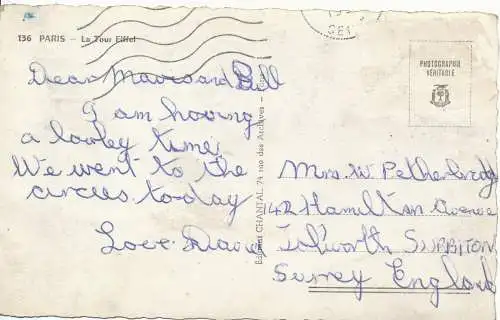 136 PARIS - La Tour Eiffel
Dear Mavis and Bill
I am hoving
a lovley time,
We went to the
circus today
Love David
Editions CHANTAL, 74 rue des Archives - Paris
PHOTOGRAPHIE
VÉRITABLE
Mrs. W Petherbridge
142 Hamilton Avenue
Tolworth SURBITON
Surrey England